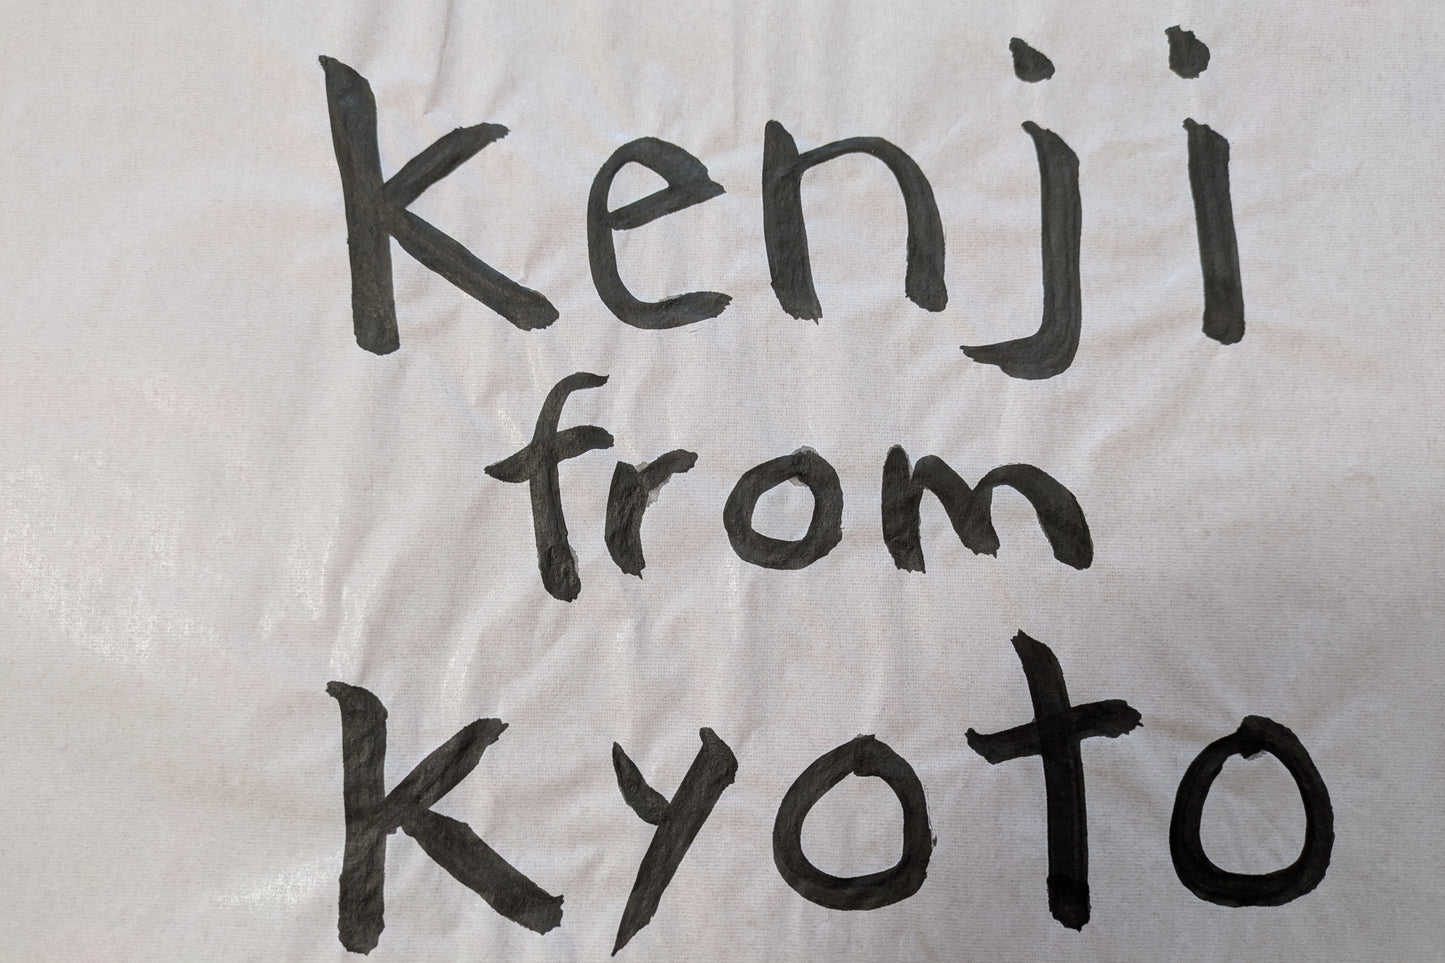 Kenji
from
Kyoto